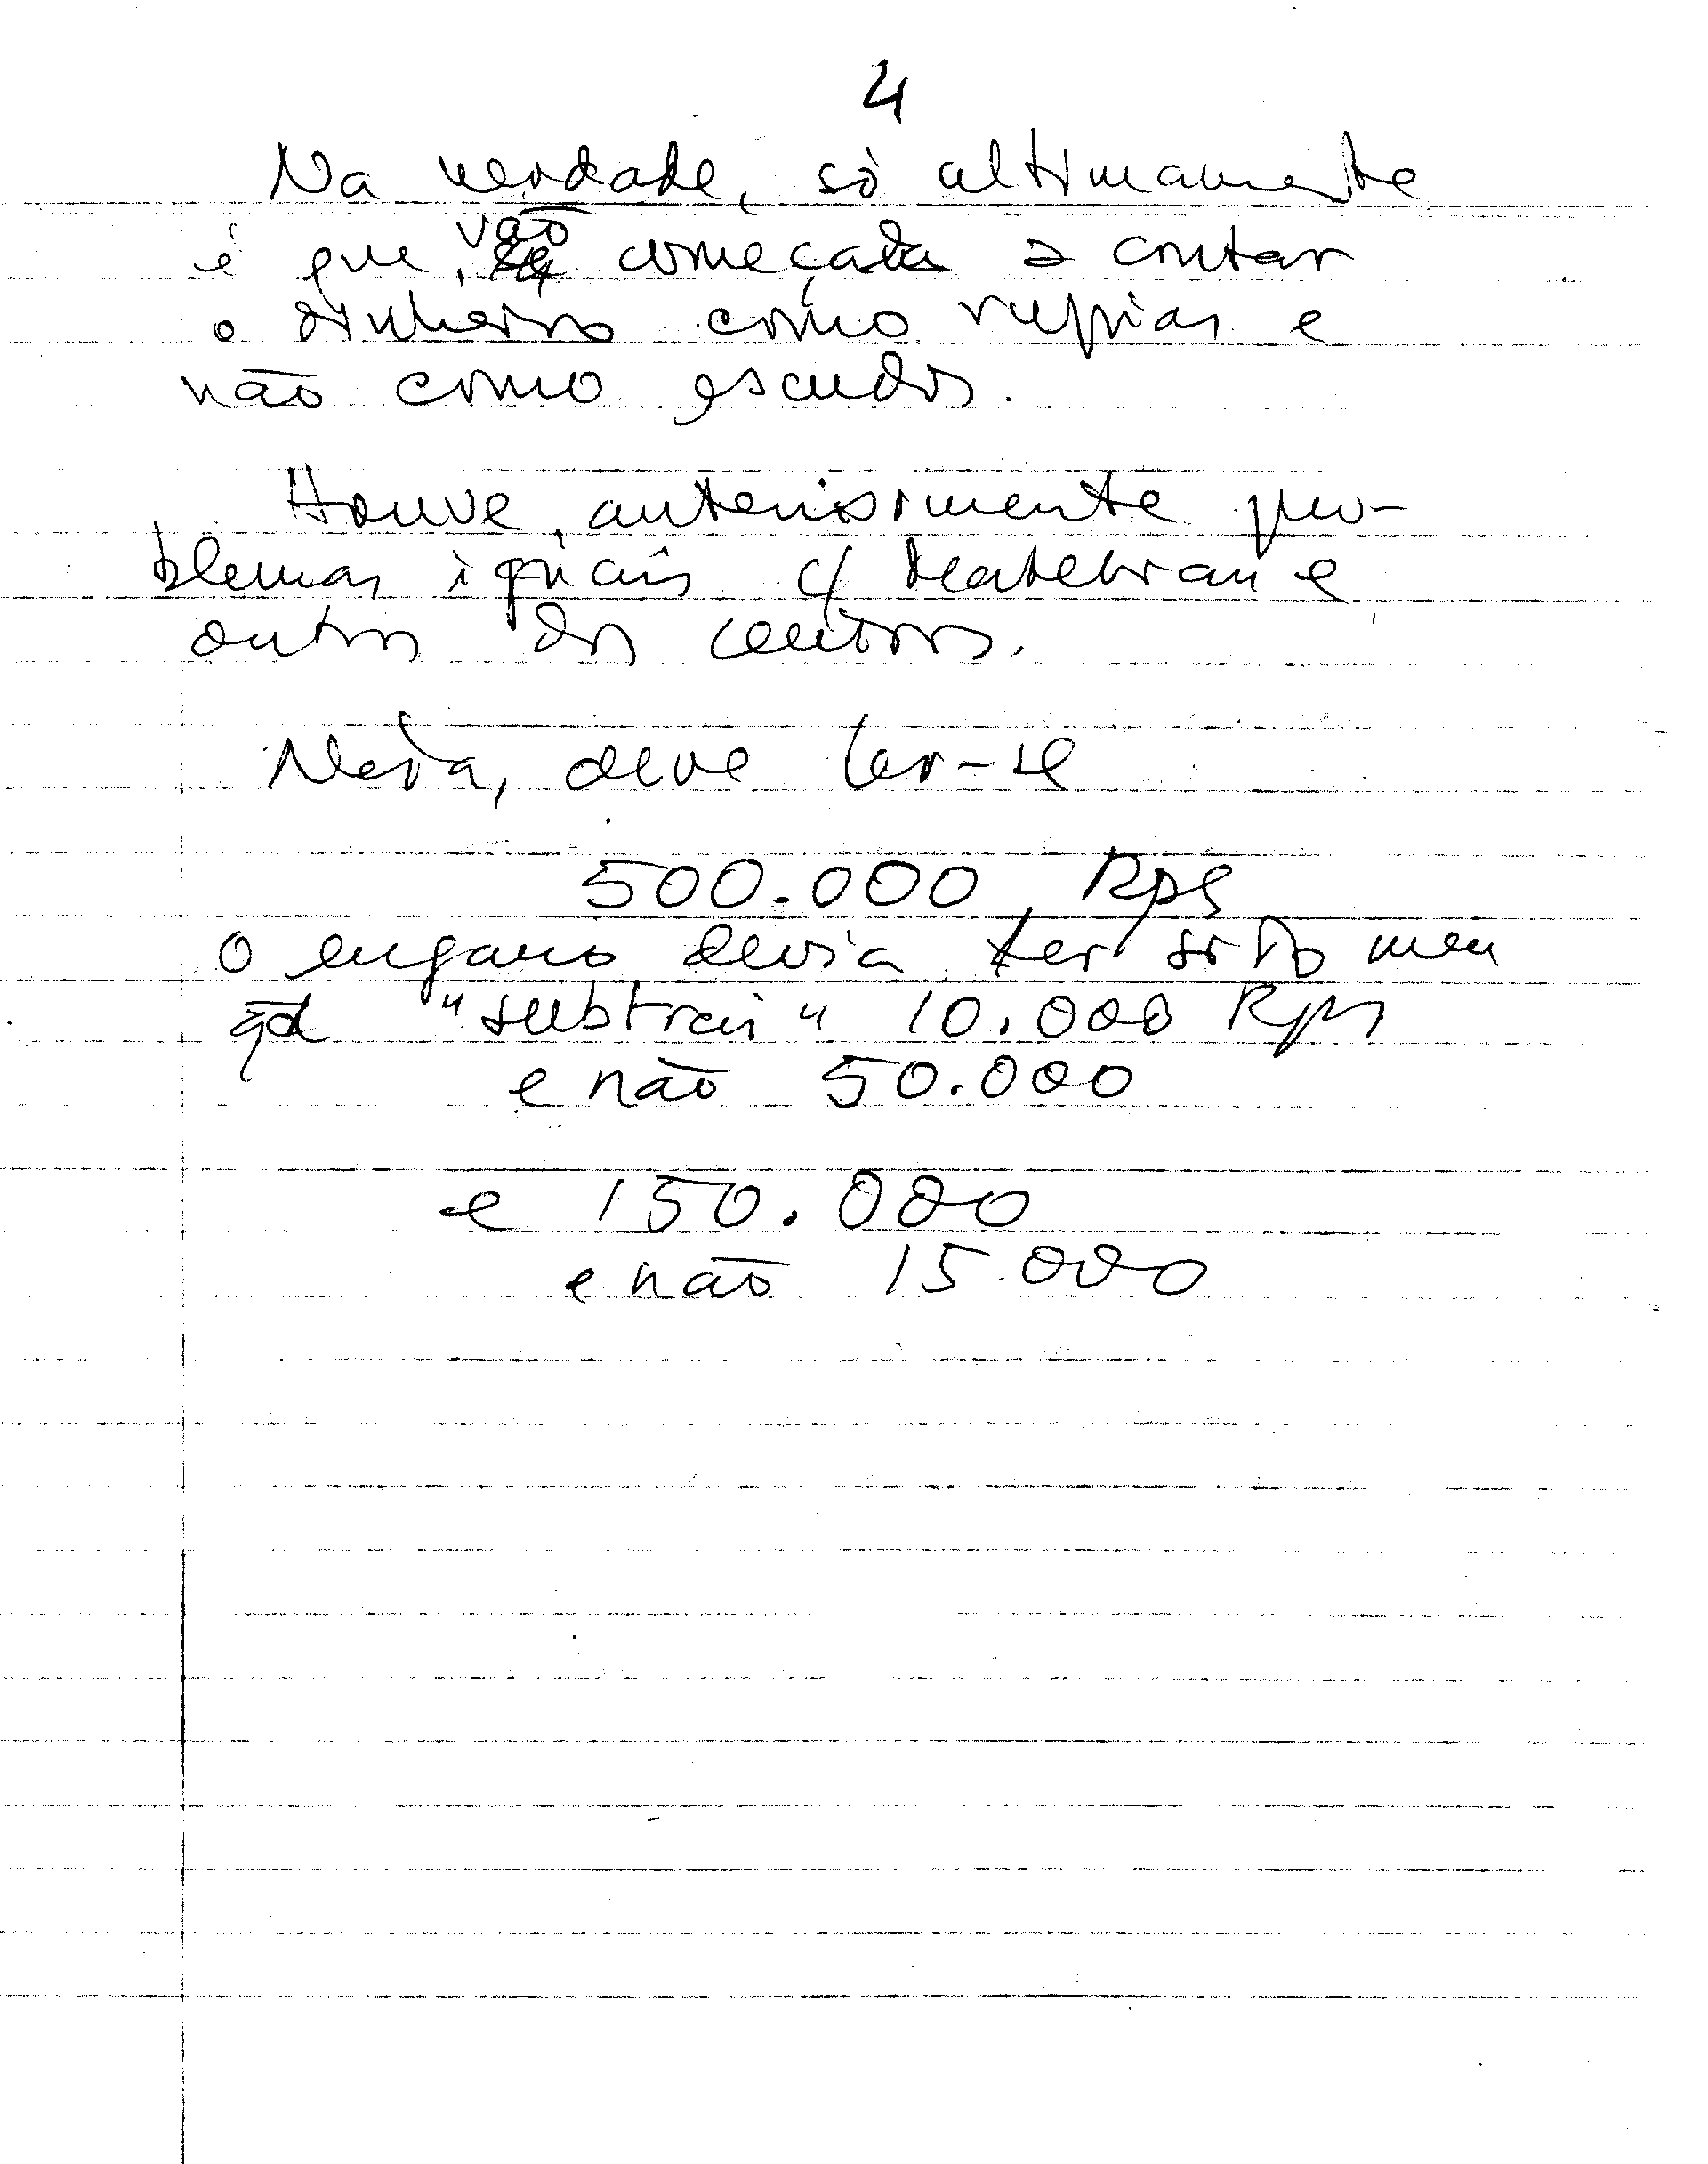 4
Na verdade, só ultimamente
é que vão começada a contar
o dinheiro como rupias e
não como escudos.
Houve, anteriormente pro-
blemas iguais c/ Beatebrau e
outros dos centros.
deve ler-se
500.000 Rps
O engano devia ter sido meu
qd "subtrai" 10.000 Rps
e não 50.000
e 150.000
e não 15.000